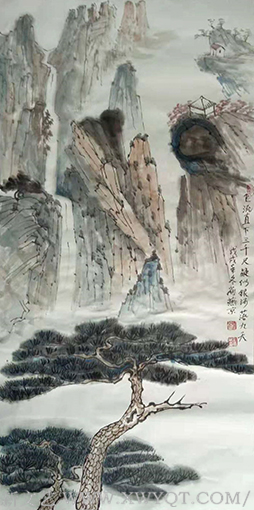 飞流直下三千尺疑似银河落九天
戊戌年冬
WWW.XWYQT.COM/